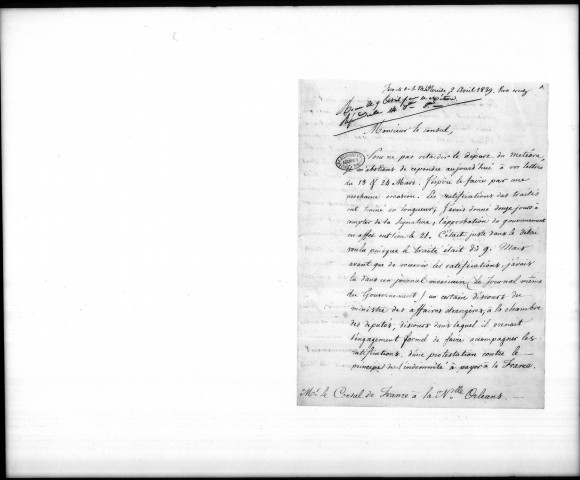 2 Avril 1839.
Monsieur le consul,
Pour ne pas retarder le départ du météore,
je m'abstiens de repondre aujourd'hui à vos lettres
du 13 & 24 Mars. J'espère le faire par une
prochaine occasion. Les ratifications des traités
ont trainé en longueur; j'avais donné douze jours à
compter de la signature, l'approbation du gouvernement
en effet eut lieu le 21. C'était juste dans le délai
voulu puisque le traité était du 9. Mais
avant que de recevoir les ratifications, j'avais
lu dans un journal mexicain (le Journal même
du Gouvernement) un certain discours du
ministre des affaires étrangères, à la chambre
des députés, discours dans lequel il prenait
l'engagement formel de faire accompagner les
ratifications, d'une protestation contre le
principe de l'indemnité à payer à la France.
Mr. le Consul de France à la Nlle Orléans.